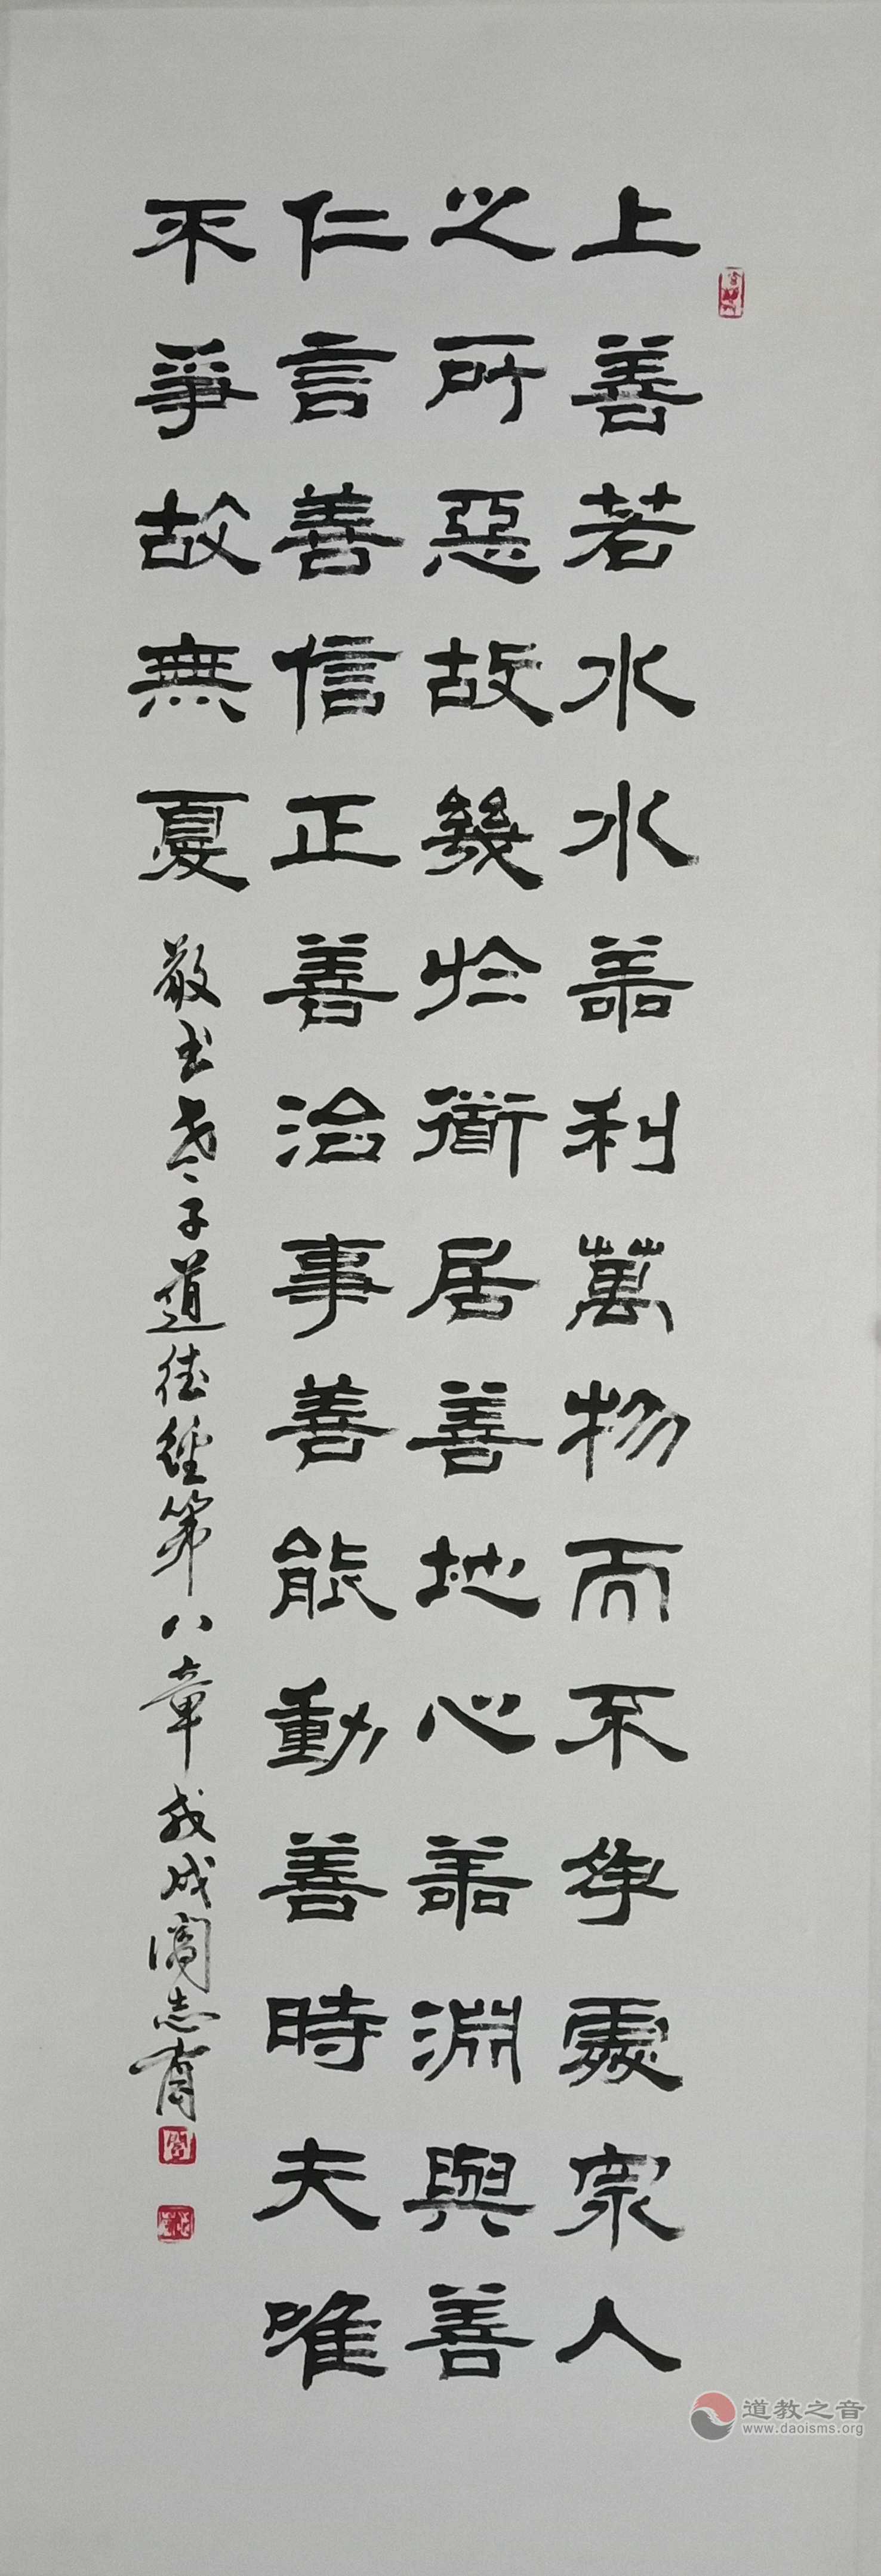 上善若水水善利萬物而不爭處眾人
之所惡故幾於衟居善地心善淵與善
仁言善信正善治事善能動善時夫唯
不爭故無夏
敬书老子道德經第八章戊戌閻志
道教之音
www.daoisms.org